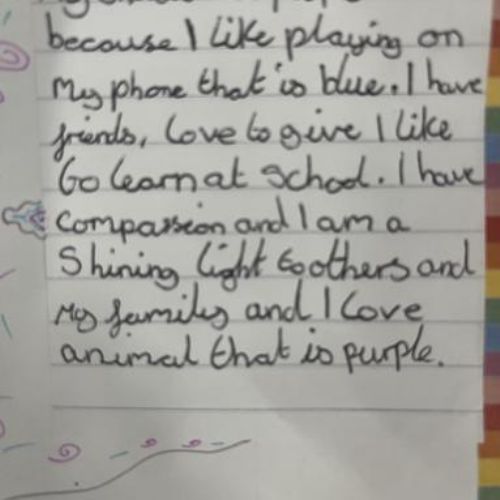 because I like playing on
My phone that is blue. I have
friends, love to give I like
to learn at school. I have
compassion and I am a
Shining light to others and
My family and I love
animal that is purple.